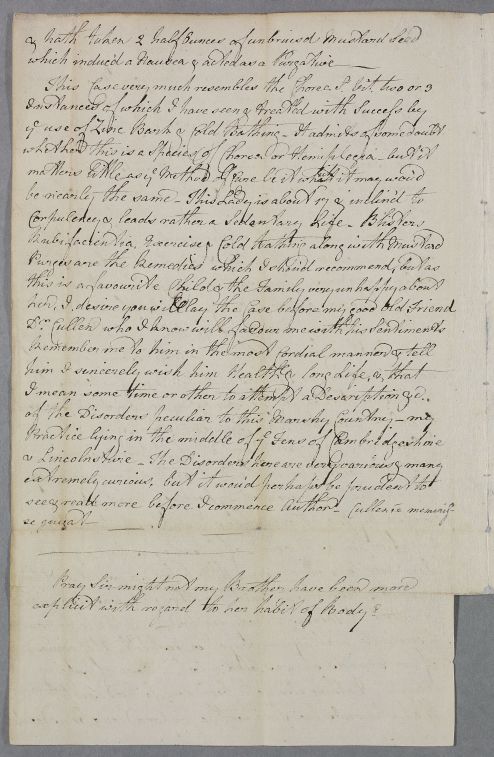 & hath taken 2 half Ounces of unbruised Mustard Seed
which induced a Nausea & acted as a Purgative —
This Case very much resembles the Chorea S. Vit. two or 3
Instances of which I have seen & treated with Success by
ye use of Zinc Bark & Cold Bathing — It admits of some doubt
whether this is a Species of Chorea or Hemiplegia — but it
matters little as ye Method of Cure be it what it may wou'd
be nearly the same — This Lady is about 17 & inclin'd to
Corpulency, & leads rather a Sedentary Life — Blisters
Rubifacientia, Exercise & Cold Bathing along with Mustard
Purges are the Remedies which I shou'd recommend, but as
this is a favourite Child & the Family very unhappy about
her, I desire you will lay the Case before my good Old Friend
Dr. Cullen who I know will favour me with his Sentiments
Remember me to him in the most Cordial manner & tell
him I sincerely wish him Health & long Life, & that
I mean some time or other to attempt a Description &c.
of the Disorders peculiar to this Marshy Country — my
Practice lying in the middle of ye Fens of Cambridgeshire
& Lincolnshire — The Disorders here are very various & many
extremely curious, but it wou'd perhaps be prudent to
see & read more before I commence Author
Pray Sir might not my Brother have been more
explicit with regard to her habit of Body?